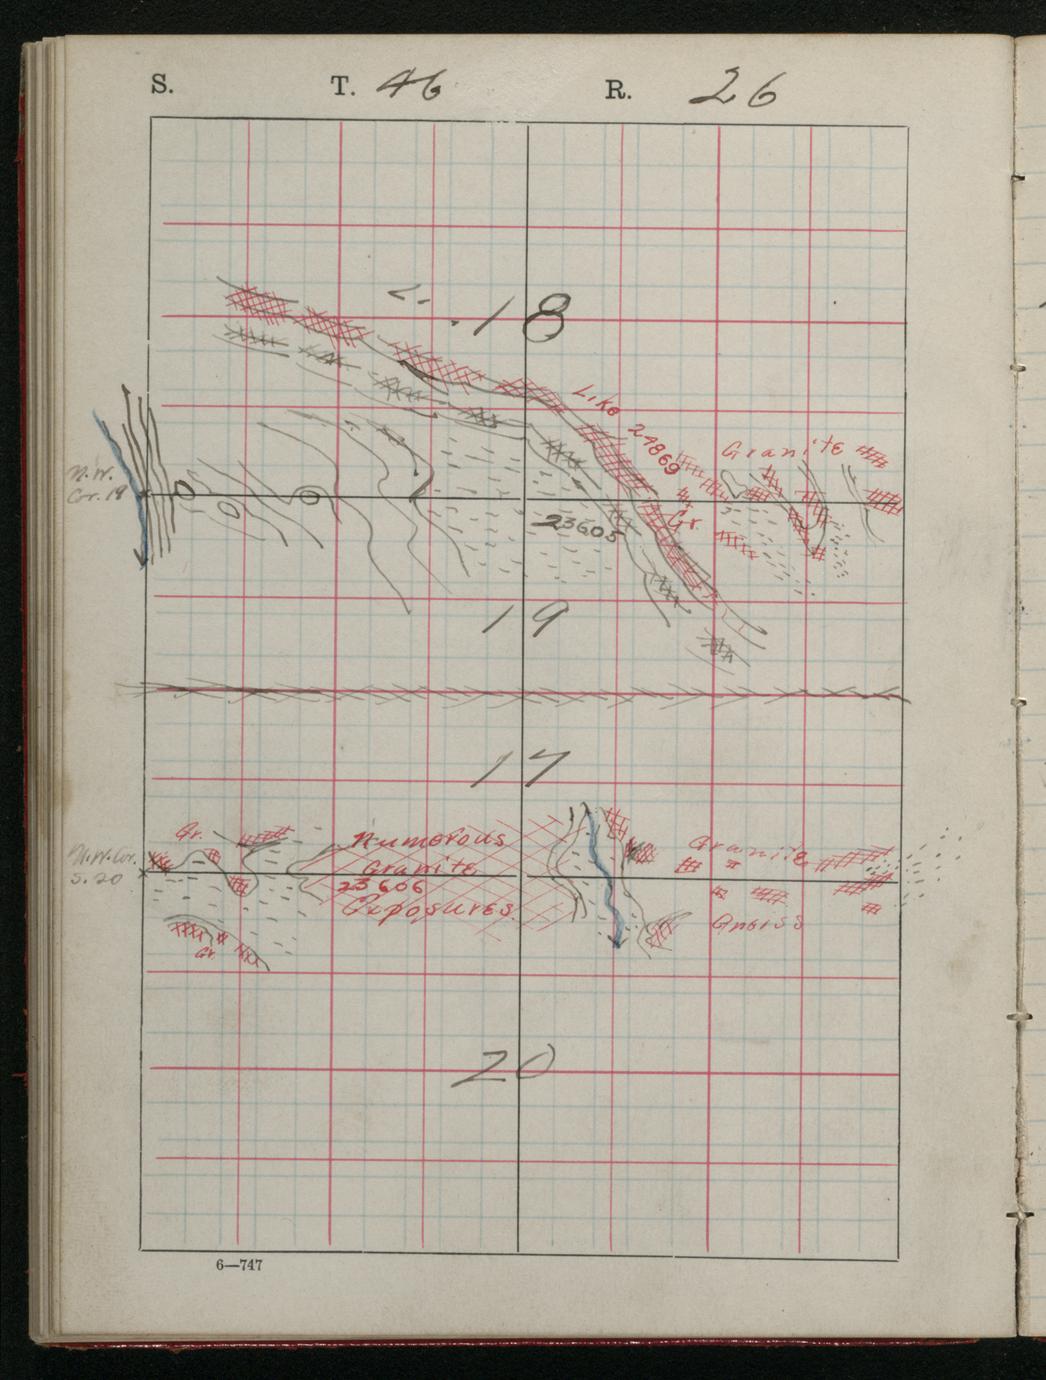 S. T. 46 R. 26
18
Like 24869
Granite
N.W.
Cr. 19
Gr.
23605
19
17
Gr.
Numerous
Granite
23606
Exposures
Granite
Gneiss
N.W. Cor.
S. 20
Gr.
20
6—747